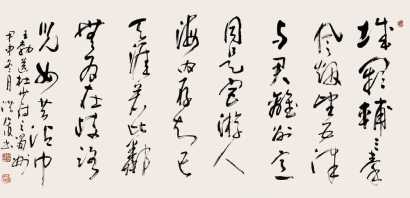 城闕輔三秦
風烟望五津
与君離別意
同是宦游人
海內存知己
天涯若比鄰
無为在歧路
兒女共沾巾
王勃送杜少府之蜀州
甲申冬月